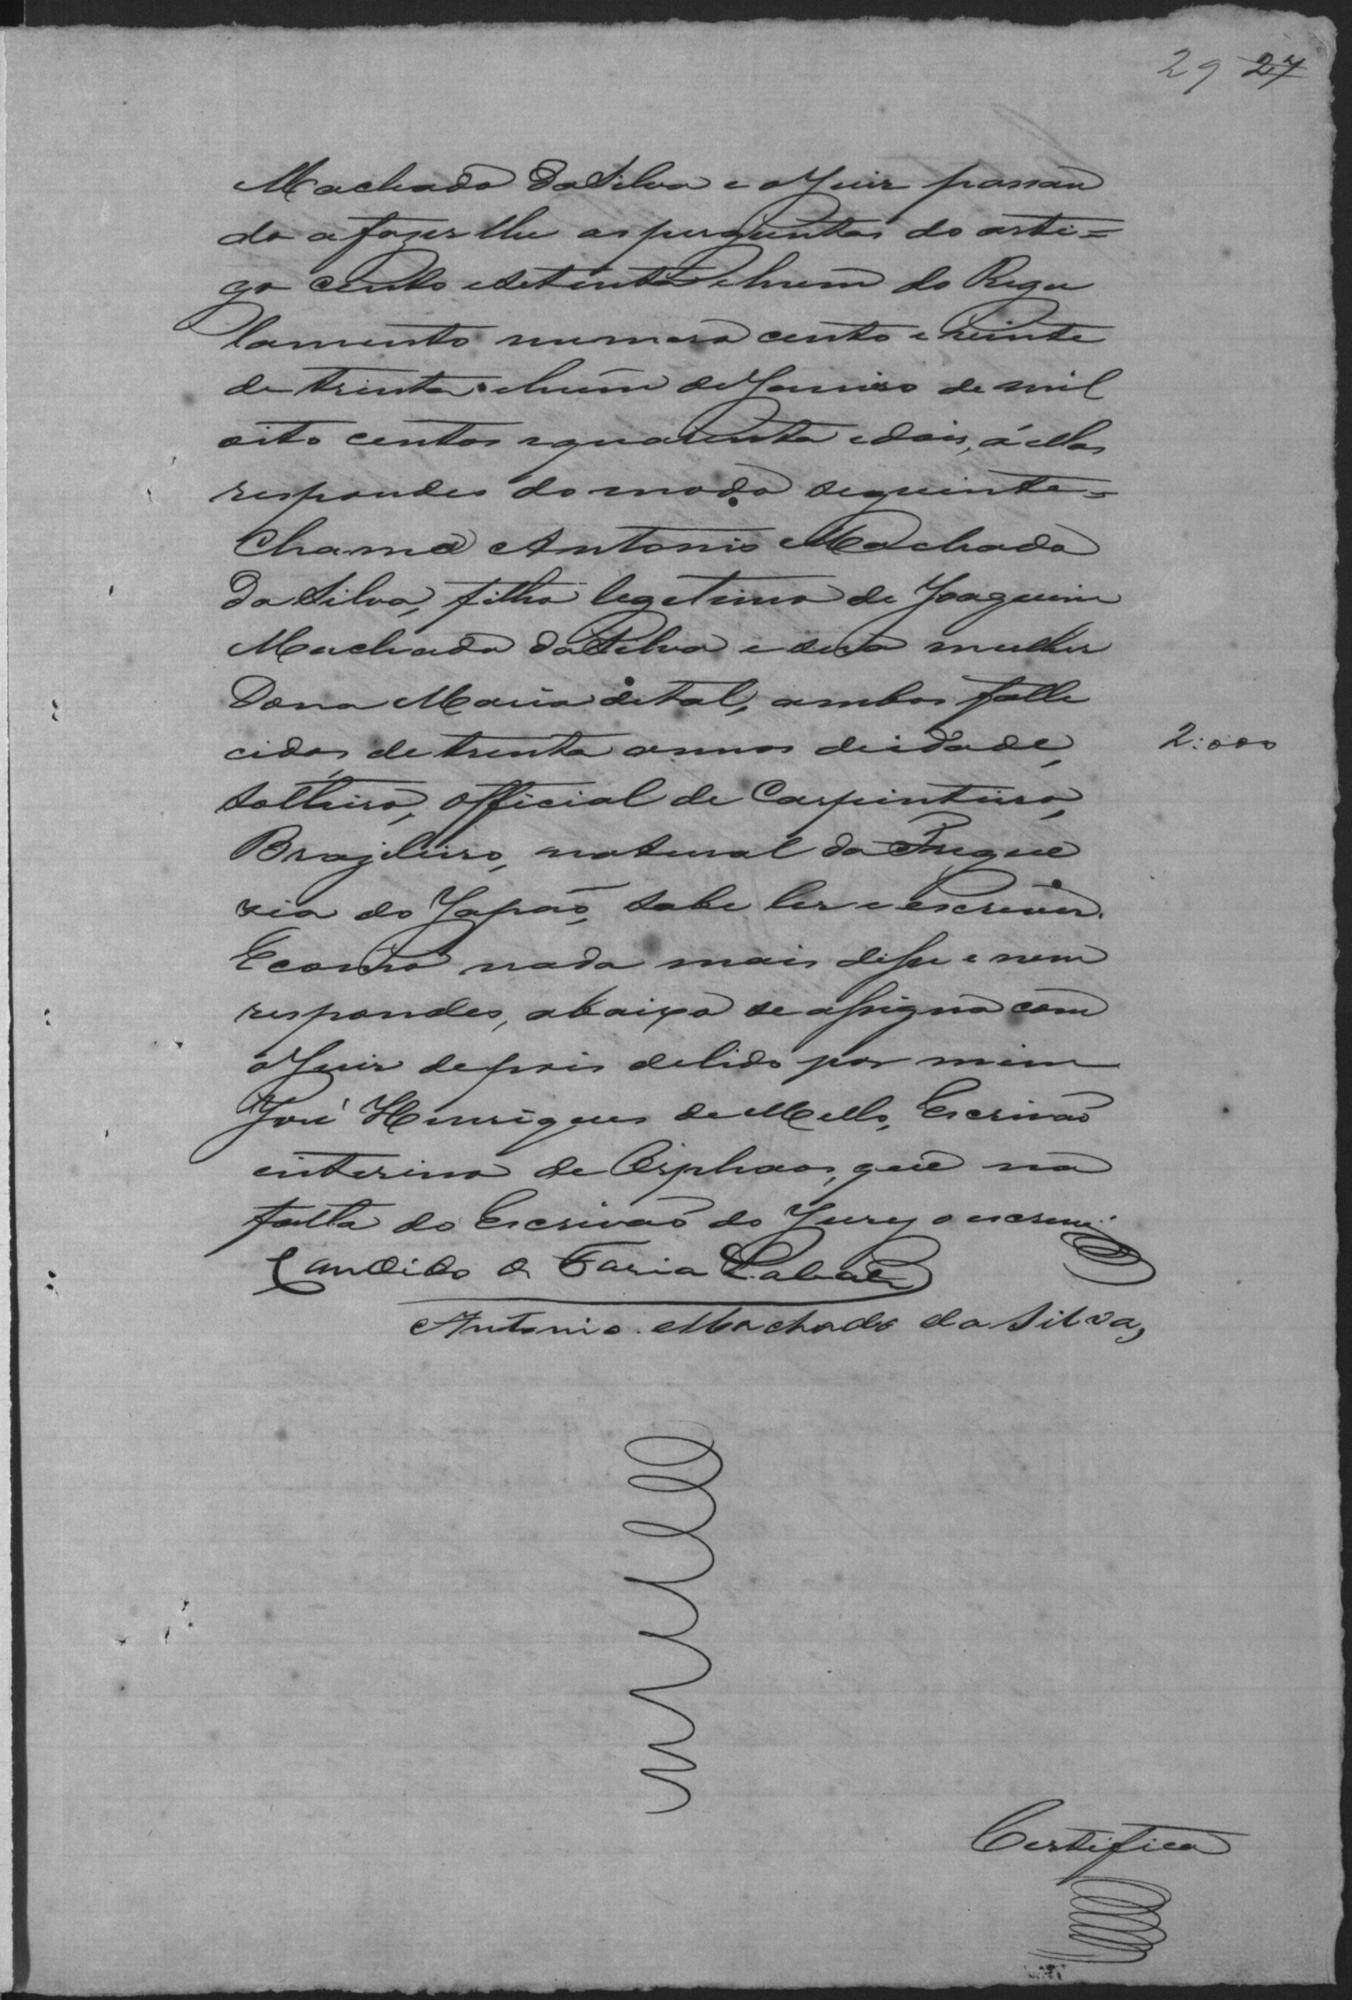 29 27
Machado da Silva e o Juiz passan
do a fazer lhe as perguntas do arti=
go cento e setenta e hum do Regu
lamento numero cento e veinte
de trinta e hum de Janeiro de mil
oito centos e quarenta e dois, á ellas
respondeo do modo seguinte=
Chama Antonio Machado
da Silva, filho legetimo de Joaquim
Machado da Silva e sua mulher
Dona Maria de tal, ambos falle
cidos, de trenta annos de idade,
2:000
solteiro, official de Carpinteiro,
Brazileiro, natural da Fregue
zia do Japaõ, sabe ler e escrever.
E como nada mais disse e nem
respondeo, abaixo se assigna com
o Juiz depois de lido por mim
José Henriques de Mello, Escrivaõ
interino de Orphaos, que na
falta do Escrivaõ do Jury o escrevi.
Candido de Faria Cabral
Antonio Machado da Silva,
Certifico